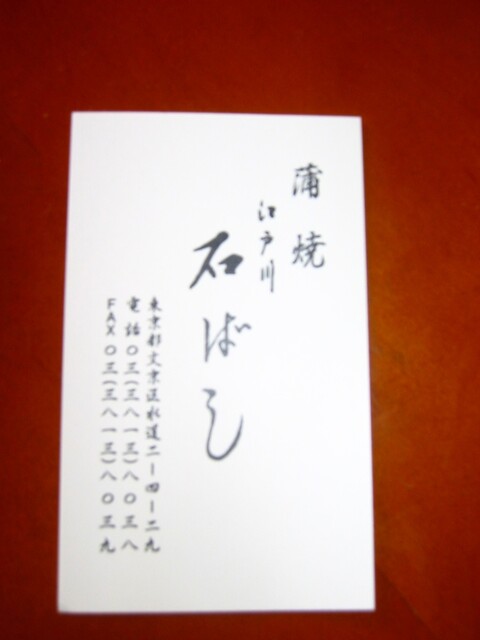 蒲焼
江戸川
石ばし
東京都文京区水道二ー四ー二九
電話〇三(三八一三)八〇三八
FAX〇三(三八一三)八〇三九